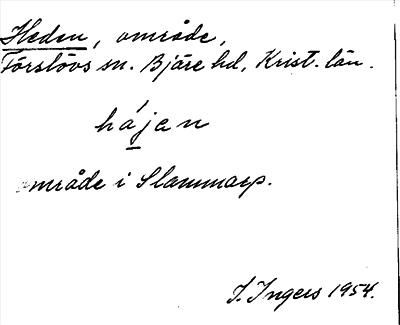 Heden, område,
Förslövs sn. Bjäre hd, Krist. län.
hájan
område i Slammarp.
I. Ingers 1954.